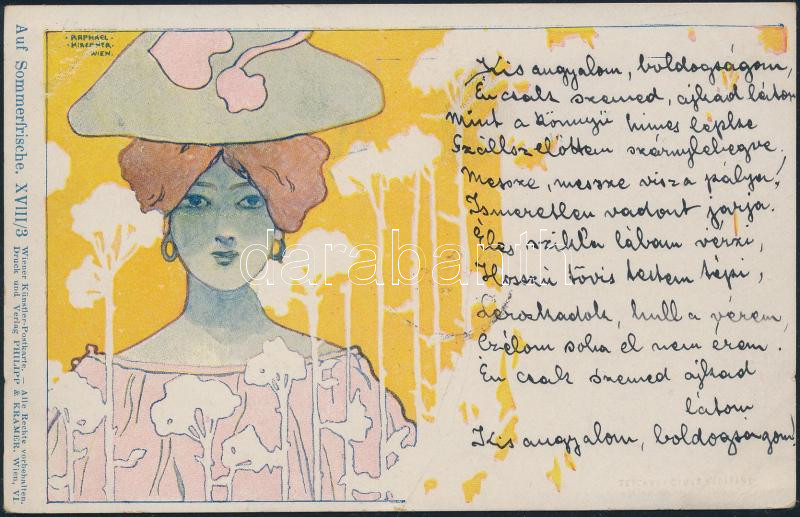 RAPHAEL
KIRCHNER
WIEN.
Auf Sommerfrische. XVIII/3
Wiener Künstler-Postkarte. Alle Rechte vorbehalten.
Druck und Verlag PHILIPP & KRAMER, Wien, VI
Kis angyalom, boldogságom,
Én csak szemed, ajkad látom
Mint a könnyü himes lepke
Szállsz előttem szárnylebegve.
Messze, messze visz a pálya!
Ismeretlen vadont járja.
Éles szikla lábam vérzi,
Hosszú tövis testem tépi,
Leroskadok, hull a vérem,
Czélom soha el nem érem.
Én csak szemed ajkad
látom
Kis angyalom, boldogságom!
darabanth